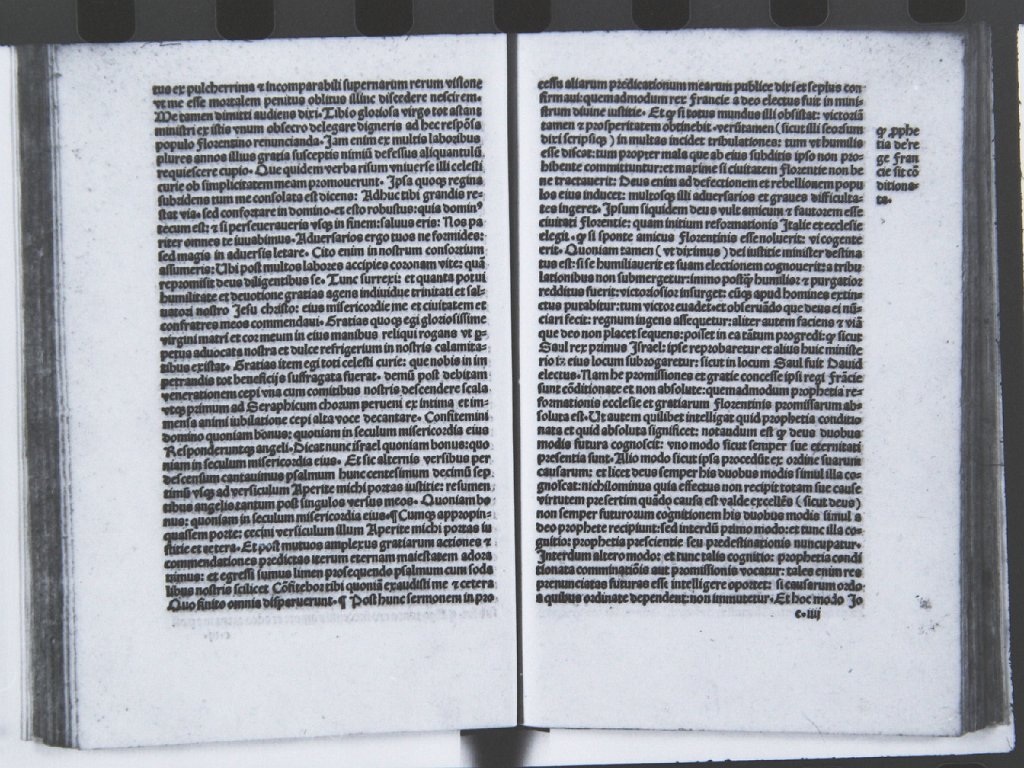 tus ex pulcherrima ⁊ incomparabili supernarum rerum visione
vt me esse mortalem penitus oblitus illinc discedere nescirem.
Me tamen dimitti audiens dixi. Tibi o gloriosa virgo tot astant
ministri ex istis vnum obsecro delegare digneris ad hec respõsa
populo Florentino renuncianda. Iam enim ex multis laboribus
plures annos illius gratia susceptis nimiũ defessus aliquantulũ
requiescere cupio. Que quidem verba risum vniuerse illi celesti
curie ob simplicitatem meam promouerunt. Ipsa quoqꝫ regina
subridens tum me consolata est dicens: Adhuc tibi grandis re-
stat via. sed confortare in domino. et esto robustus: quia domin⁹
tecum est: ⁊ si perseueraueris vsqꝫ in finem: saluus eris: Nos pa
riter omnes te iuuabimus. Aduersarios ergo tuos ne formides:
sed magis in aduersis letare. Cito enim in nostrum consortium
assumeris: Ubi post multos labores accipies coronam vite: quã
repromisit deus diligentibus se. Tunc surrexi: et quanta potui
humilitate et deuotione gratias agens indiuidue trinitati et sal-
uatori nostro Jesu christo: eius misericordie me et ciuitatem et
confratres meos commendaui. Gratias quoqꝫ egi gloriosissime
virgini matri et cor meum in eius manibus reliqui rogans vt ꝑ-
petua aduocata nostra et dulce refrigerium in nostris calamita-
tibus existat. Gratias item egi toti celesti curie: que nobis in im
petrandis tot beneficijs suffragata fuerat. Demũ post debitam
venerationem cepi vna cum comitibus nostris descendere scala
vtqꝫ primum ad Seraphicum chorum perueni ex intima et im-
mensa animi iubilatione cepi alta voce decantare. Confitemini
domino quoniam bonus: quoniam in seculum misericordia eius
Responderuntqꝫ angeli. Dicat nunc israel quoniam bonus: quo
niam in seculum misericordia eius. Et sic alternis versibus per
descensum cantauimus psalmum hunc centesimum decimũ sep
timũ vsqꝫ ad versiculum Aperite michi portas iustitie: resumen
tibus angelis tantum post singulos versus meos. Quoniam bo
nus: quoniam in seculum misericordia eius. ¶ Cumqꝫ appropin-
quassem porte: cecini versiculum illum Aperite michi portas iu
stitie et cetera. Et post mutuos amplexus gratiarum actiones ⁊
commendationes predictas iterum eternam maiestatem adora
uimus: et egressi sumus limen prosequendo psalmum cum soda
libus nostris scilicet Cõfitebor tibi quoniã exaudisti me ⁊ cetera
Quo finito omnia disparuerunt. ¶ Post hunc sermonem in pro
cessu aliarum predicationum mearum publice dixi et sepius con-
firmaui: quemadmodum rex Francie a deo electus fuit in mini-
strum diuine iustitie. Et ꝙ si totus mundus illi obsistat: victoriã
tamen ⁊ prosperitatem obtinebit. verũtamen (sicut illi seorsum
dixi scripsiqꝫ) in multas incidet tribulationes: tum vt humilis
esse discat: tum propter mala que ab eius subditis ipso non pro-
hibente committuntur: et maxime si ciuitatem Florentie non be
ne tractauerit: Deus enim ad defectionem et rebellionem popu
los eius induret: multosqꝫ illi aduersarios et graues difficulta-
tes ingeret. Ipsum siquidem deus vult amicum ⁊ fautorem esse
ciuitati Florentie: quam initium reformationis Italie et ecclesie
elegit. ꝙ si sponte amicus Florentinis esse noluerit: vi cogente
erit. Quoniam tamen (vt diximus) dei iustitie minister destina
tus est: si se humiliauerit et suam electionem cognouerit: a tribu
lationibus non submergetur: immo postꝙ humilis: ⁊ purgatior
redditus fuerit: victoriosior insurget: eũqꝫ apud homines extin-
ctus putabitur: tum victor euadet. et obseruãdo que deus ei nũ-
ciari fecit: regnum ingens assequetur: aliter autem faciens ⁊ viã
que deo non placet sequens: posset in ea tãtum progredi: ꝙ sicut
Saul rex primus Israel: ipse reprobaretur et alius huic ministe
rio in eius locum subrogaretur: sicut in locum Saul fuit Dauid
electus. Nam he promissiones et gratie concesse ipsi regi Frãcie
sunt cõditionate et non absolute: quemadmodum prophetia re-
formationis ecclesie et gratiarum Florentinis promissarum ab-
soluta est. Ut autem quilibet intelligat quid prophetia conditio
nata et quid absoluta significet: notandum est ꝙ deus duobus
modis futura cognoscit: vno modo sicut semper sue eternitati
presentia sunt. Alio modo sicut ipsa procedũt ex ordine suarum
causarum: et licet deus semper his duobus modis simul illa co-
gnoscat: nichilominus quia effectus non recipit totam sue cause
virtutem presertim quãdo causa est valde excellẽs (sicut deus)
non semper futurorum cognitionem his duobus modis simul a
deo prophete recipiunt: sed interdũ primo modo: et tunc illa co-
gnitio: prophetia prescientie seu predestinationis nuncupatur.
Interdum altero modo: et tunc talis cognitio: prophetia condi
tionata comminatiõis aut promissionis vocatur: tales enim res
prenunciatas futuras esse intelligere oportet: si causarum ordo
a quibus ordinate dependent: non immutetur. Et hoc modo Io
c. iiij
ꝙ ꝓphe
tia de re
ge Fran
cie sit cõ
ditiona-
ta.